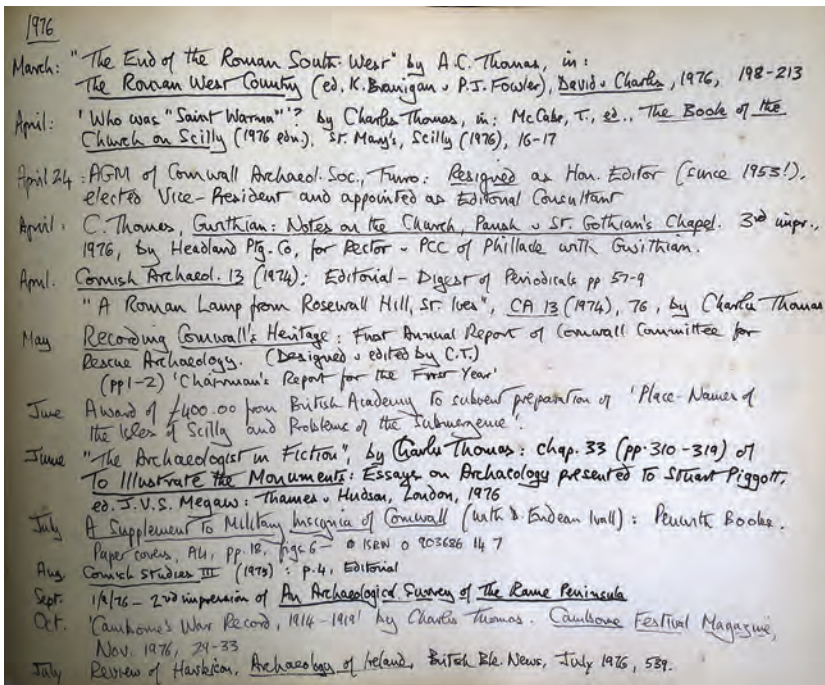 1976
March: "The End of the Roman South-West" by A.C. Thomas, in:
The Roman West Country (ed. K. Branigan & P.J. Fowler), David & Charles, 1976, 198-213
April: 'Who was "Saint Warna"'? by Charles Thomas, in: McCabe, T., ed., The Book of the
Church on Scilly (1976 edn), St. Mary's, Scilly (1976), 16-17
April 24: AGM of Cornwall Archaeol. Soc., Truro: Resigned as Hon. Editor (since 1953!).
elected Vice-President and appointed as Editorial Consultant
April. C. Thomas, Gwithian: Notes on the Church, Parish & St. Gothian's Chapel. 3rd impr.,
1976, by Headland Ptg. Co, for Rector & PCC of Phillack with Gwithian.
April. Cornish Archaeol. 13 (1974): Editorial - Digest of Periodicals pp 57-9
"A Roman Lamp from Rosewall Hill, St. Ives", CA 13 (1974), 76, by Charles Thomas
May Recording Cornwall's Heritage: First Annual Report of Cornwall Committee for
Rescue Archaeology. (Designed & edited by C.T.)
(pp 1-2) 'Chairman's Report for the First Year'
June Award of £400.00 from British Academy to subvent preparation of 'Place-Names of
the Isles of Scilly and Problems of the Submergence'.
June "The Archaeologist in Fiction", by Charles Thomas: chap. 33 (pp. 310-319) of
To Illustrate the Monuments: Essays on Archaeology presented to Stuart Piggott,
ed. J.V.S. Megaw: Thames & Hudson, London, 1976
July A Supplement to Military Insignia of Cornwall (with D. Endean Ivall): Penwith Books.
Paper covers, A4, pp. 18, figs 6 - ISBN 0 903686 14 7
Aug. Cornish Studies III (1975): p. 4, Editorial
Sept. 1/9/76 - 2nd impression of An Archaeological Survey of The Rame Peninsula
Oct. 'Camborne's War Record, 1914-1919' by Charles Thomas. Camborne Festival Magazine,
Nov. 1976, 29-33
July Review of Harbison, Archaeology of Ireland, British Bk. News, July 1976, 539.